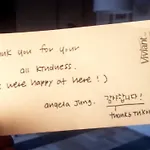 ank you for your
all kindness.
were happy at here!)
angela Jung. 감사합니다!
thanks
Vivant